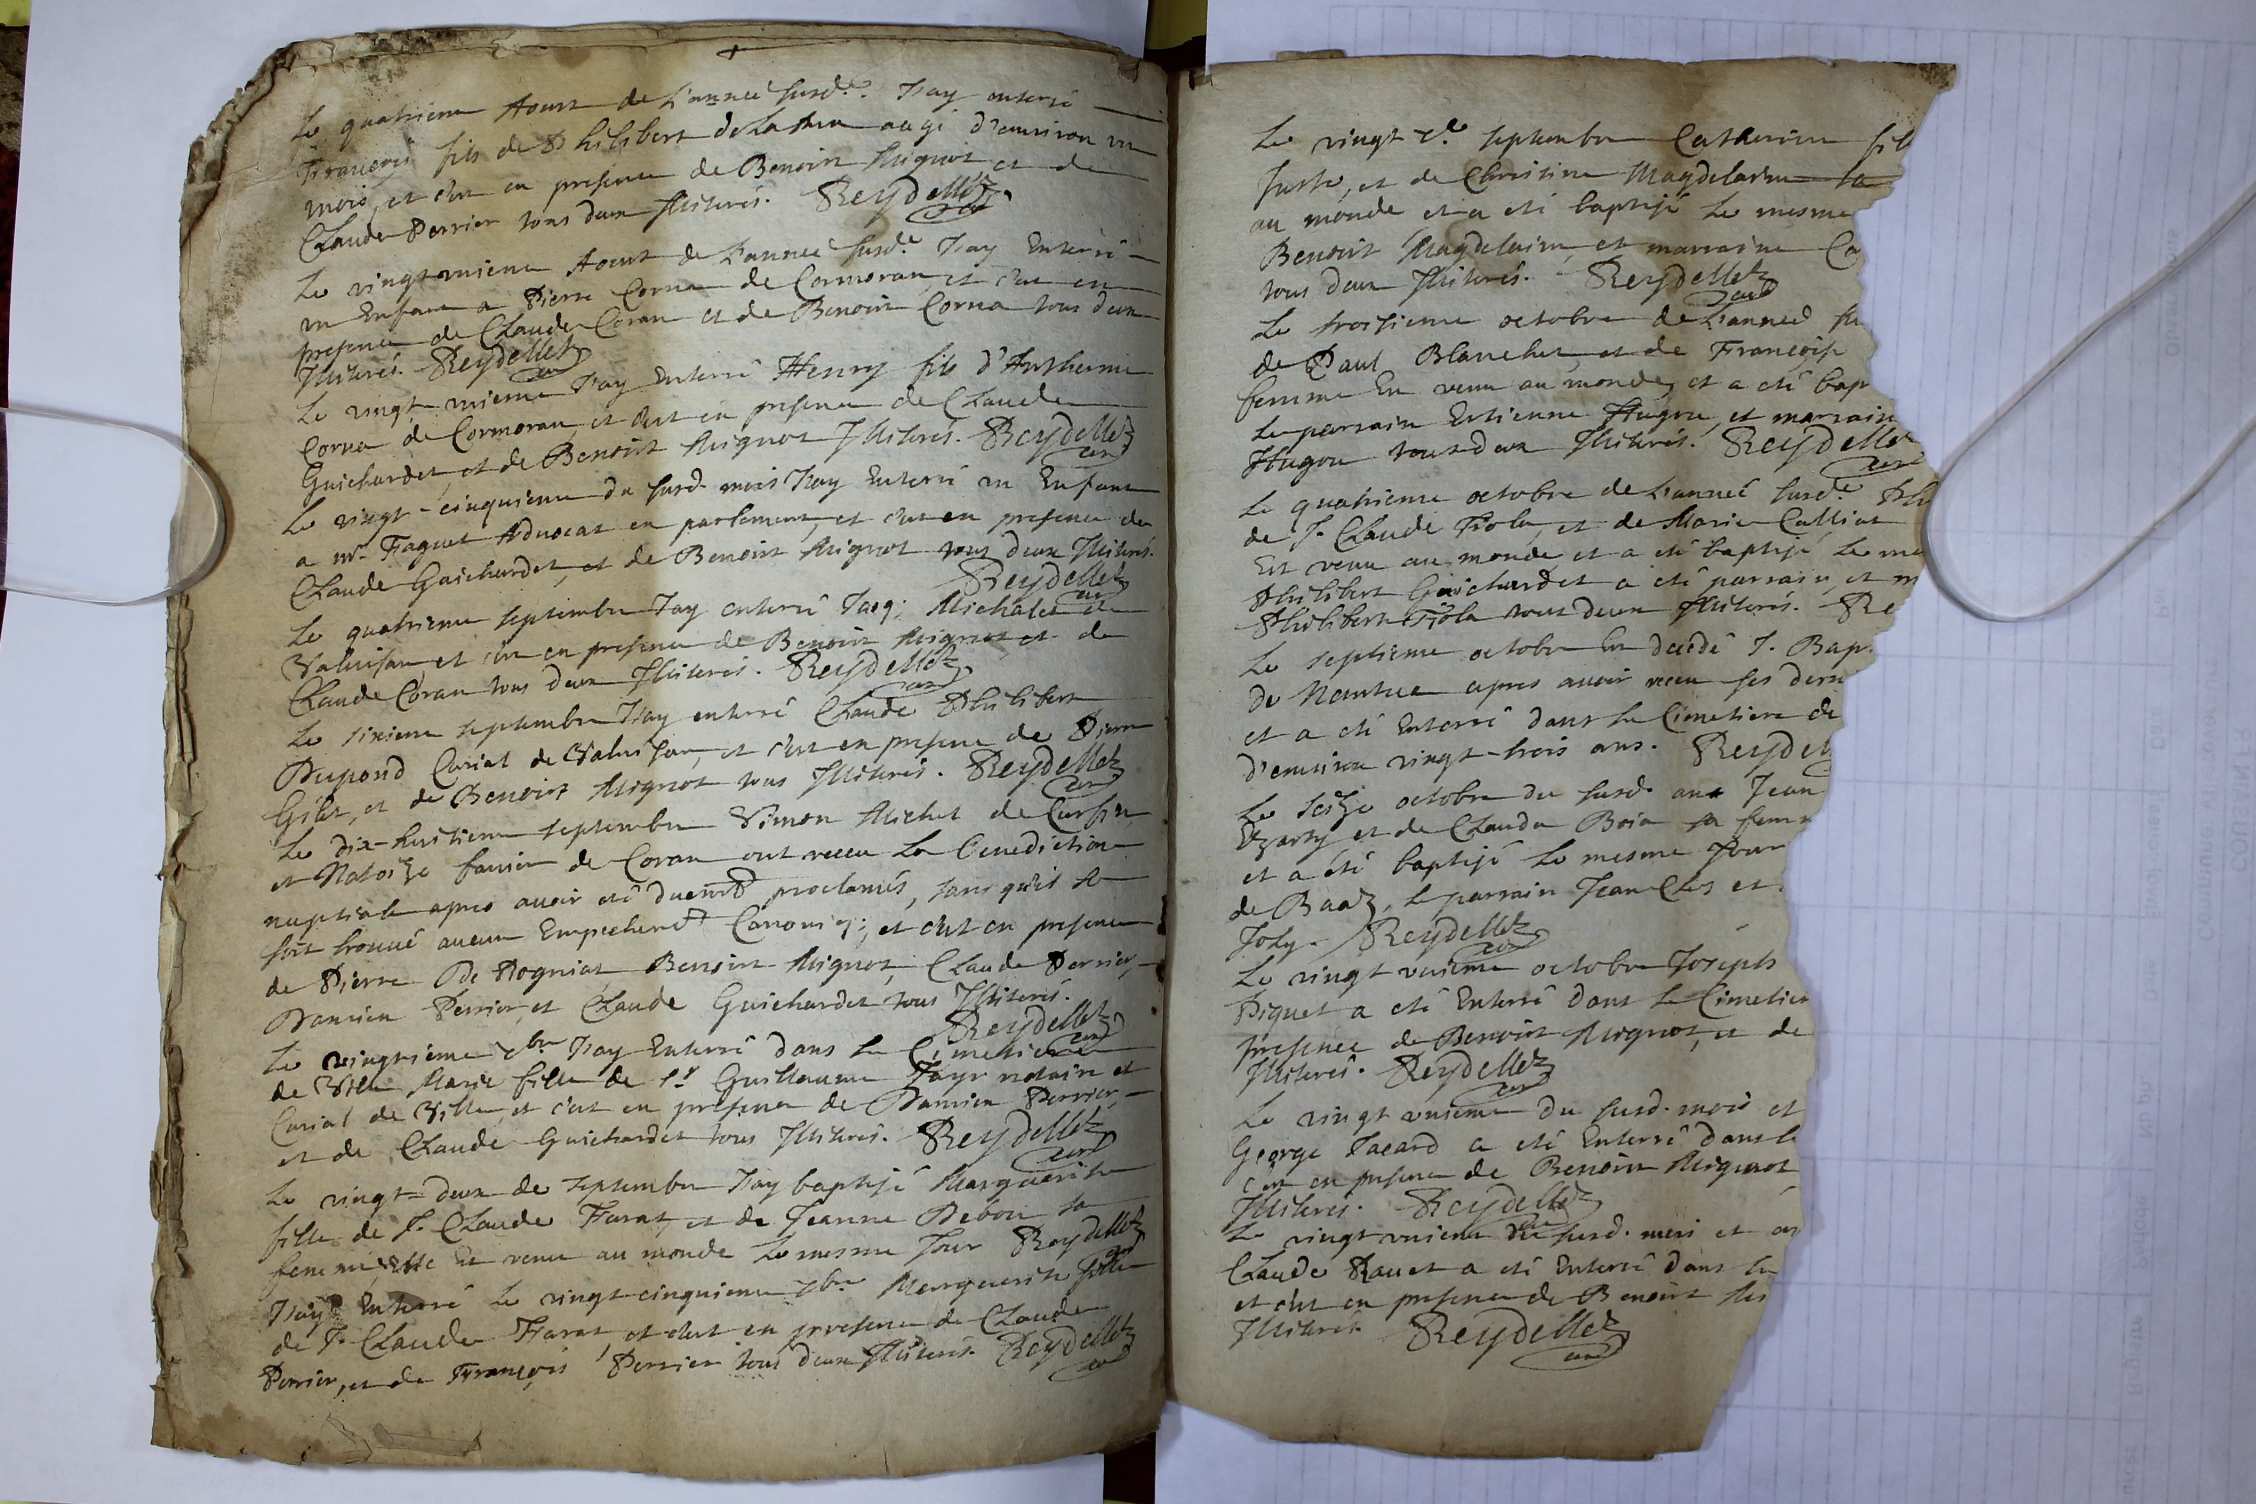 Le quatrieme Aoust de L'année susd.e J'ay enterré
François fils de Philibert agé d'environ un
mois, et c'est en presence de Benoist Mignot et de
Claude Perrier tous deux Illiterés. Reydellet
curé
Le vingt-unieme Aoust de L'année susd.e J'ay Enterré
un Enfant a Pierre Corna de Cormoran, et c'est en
presence de Claude Coran et de Benoist Corna tous deux
Illiterés. Reydellet
curé
Le vingt-unieme J'ay Enterré Henry fils d'Antheme
Corna de Cormoran, et c'est en presence de Claude
Guichardet, et de Benoist Mignot Illiterés. Reydellet
curé
Le vingt-cinquieme du susd. mois J'ay Enterré un Enfant
a mr. Faguet Advocat en parlement, et c'est en presence de
Claude Guichardet, et de Benoist Mignot tous deux Illiterés.
Reydellet
curé
Le quatrieme septembre J'ay enterré Jacq: Michalet de
et c'est en presence de Benoist Mignot et de
Claude Coran tous deux Illiterés. Reydellet
curé
Le sixieme septembre J'ay enterré Claude Philibert
Dupond Curial de et c'est en presence de Pierre
Gilet, et de Benoist Mignot tous Illiterés. Reydellet
curé
Le dix-huitieme septembre Simon Michel de
et de Coran ont receu La Benediction
nuptiale apres avoir eté duemt proclamés, sans qu'il se
soit trouvé aucun Empechemt Canoniq; et c'est en presence
de Pierre De Rogniat, Benoist Mignot, Claude Perrier,
Damien Perrier, et Claude Guichardet tous Illiterés.
Reydellet
curé
Le vingtieme 7bre J'ay Enterré dans le Cimetiere
de Ville Marie fille de Sr Guillaume Fayr notaire et
Curial de Ville, et c'est en presence de Damien Perrier,
et de Claude Guichardet tous Illiterés. Reydellet
curé
Le vingt-deux de septembre J'ay baptisé Marguerite
fille de J. Claude Farat et de Jeanne Debou sa
femme, elle Est venue au monde Le mesme Jour Reydellet
curé
J'ay Enterré Le vingt-cinquieme 7bre Marguerite fille
de J. Claude Farat et c'est en presence de Claude
Perrier, et de François Perrier tous deux Illiterés. Reydellet
curé
Le vingt 7e septembre Catherine fil
Juste, et de Christine Magdelaine sa
au monde et a eté baptisé Le mesme
Benoist Magdelaine, et marraine Ca
tous deux Illiterés. Reydellet
curé
Le troisieme octobre de L'année su
de Paul Blanchet, et de François
femme Est venu au monde, et a eté bap
Le parrain Estienne Hugon, et marrain
Hugon tous deux Illiterés. Reydellet
curé
Le quatrieme octobre de L'année susd.e Phi
de J. Claude Fiola, et de Marie Calliat
Est venu au monde et a eté baptisé Le me
Philibert Guichardet a eté parrain, et m
Philiberte Fiola tous deux Illiterés. Re
Le septieme octobre Est decedé J. Bap
de Nantua apres avoir receu ses dern
et a eté Enterré dans le Cimetiere de
d'environ vingt-trois ans. Reydell
Le seize octobre du susd. an Jean
et de Claudu Boia sa femm
et a eté baptisé Le mesme Jour
de Baaz, le parrain Jean et
Joly. Reydellet
curé
Le vingt unieme octobre Joseph
Piquet a eté Enterré dans le Cimetier
presence de Benoist Mignot, et de
Illiterés. Reydellet
curé
Le vingt unieme du susd. mois et
George Jacard a eté Enterré dans le
c'est en presence de Benoist Mignot
Illiterés. Reydellet
curé
Le vingt unieme du susd. mois et an
Claude Ravet a eté Enterré dans le
et c'est en presence de Benoist Mi
Illiterés. Reydellet
curé